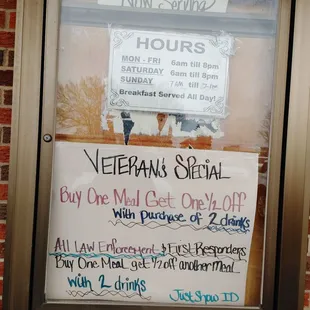 Now Serving
HOURS
MON - FRI 6am till 8pm
SATURDAY 6am till 8pm
SUNDAY 7am till
Breakfast Served All Day!
VETERANS SPECIAL
Buy One Meal Get One 1/2 Off
With purchase of 2 drinks
All Law Enforcement & First Responders
Buy One Meal get 1/2 off another Meal
with 2 drinks
Just Show ID